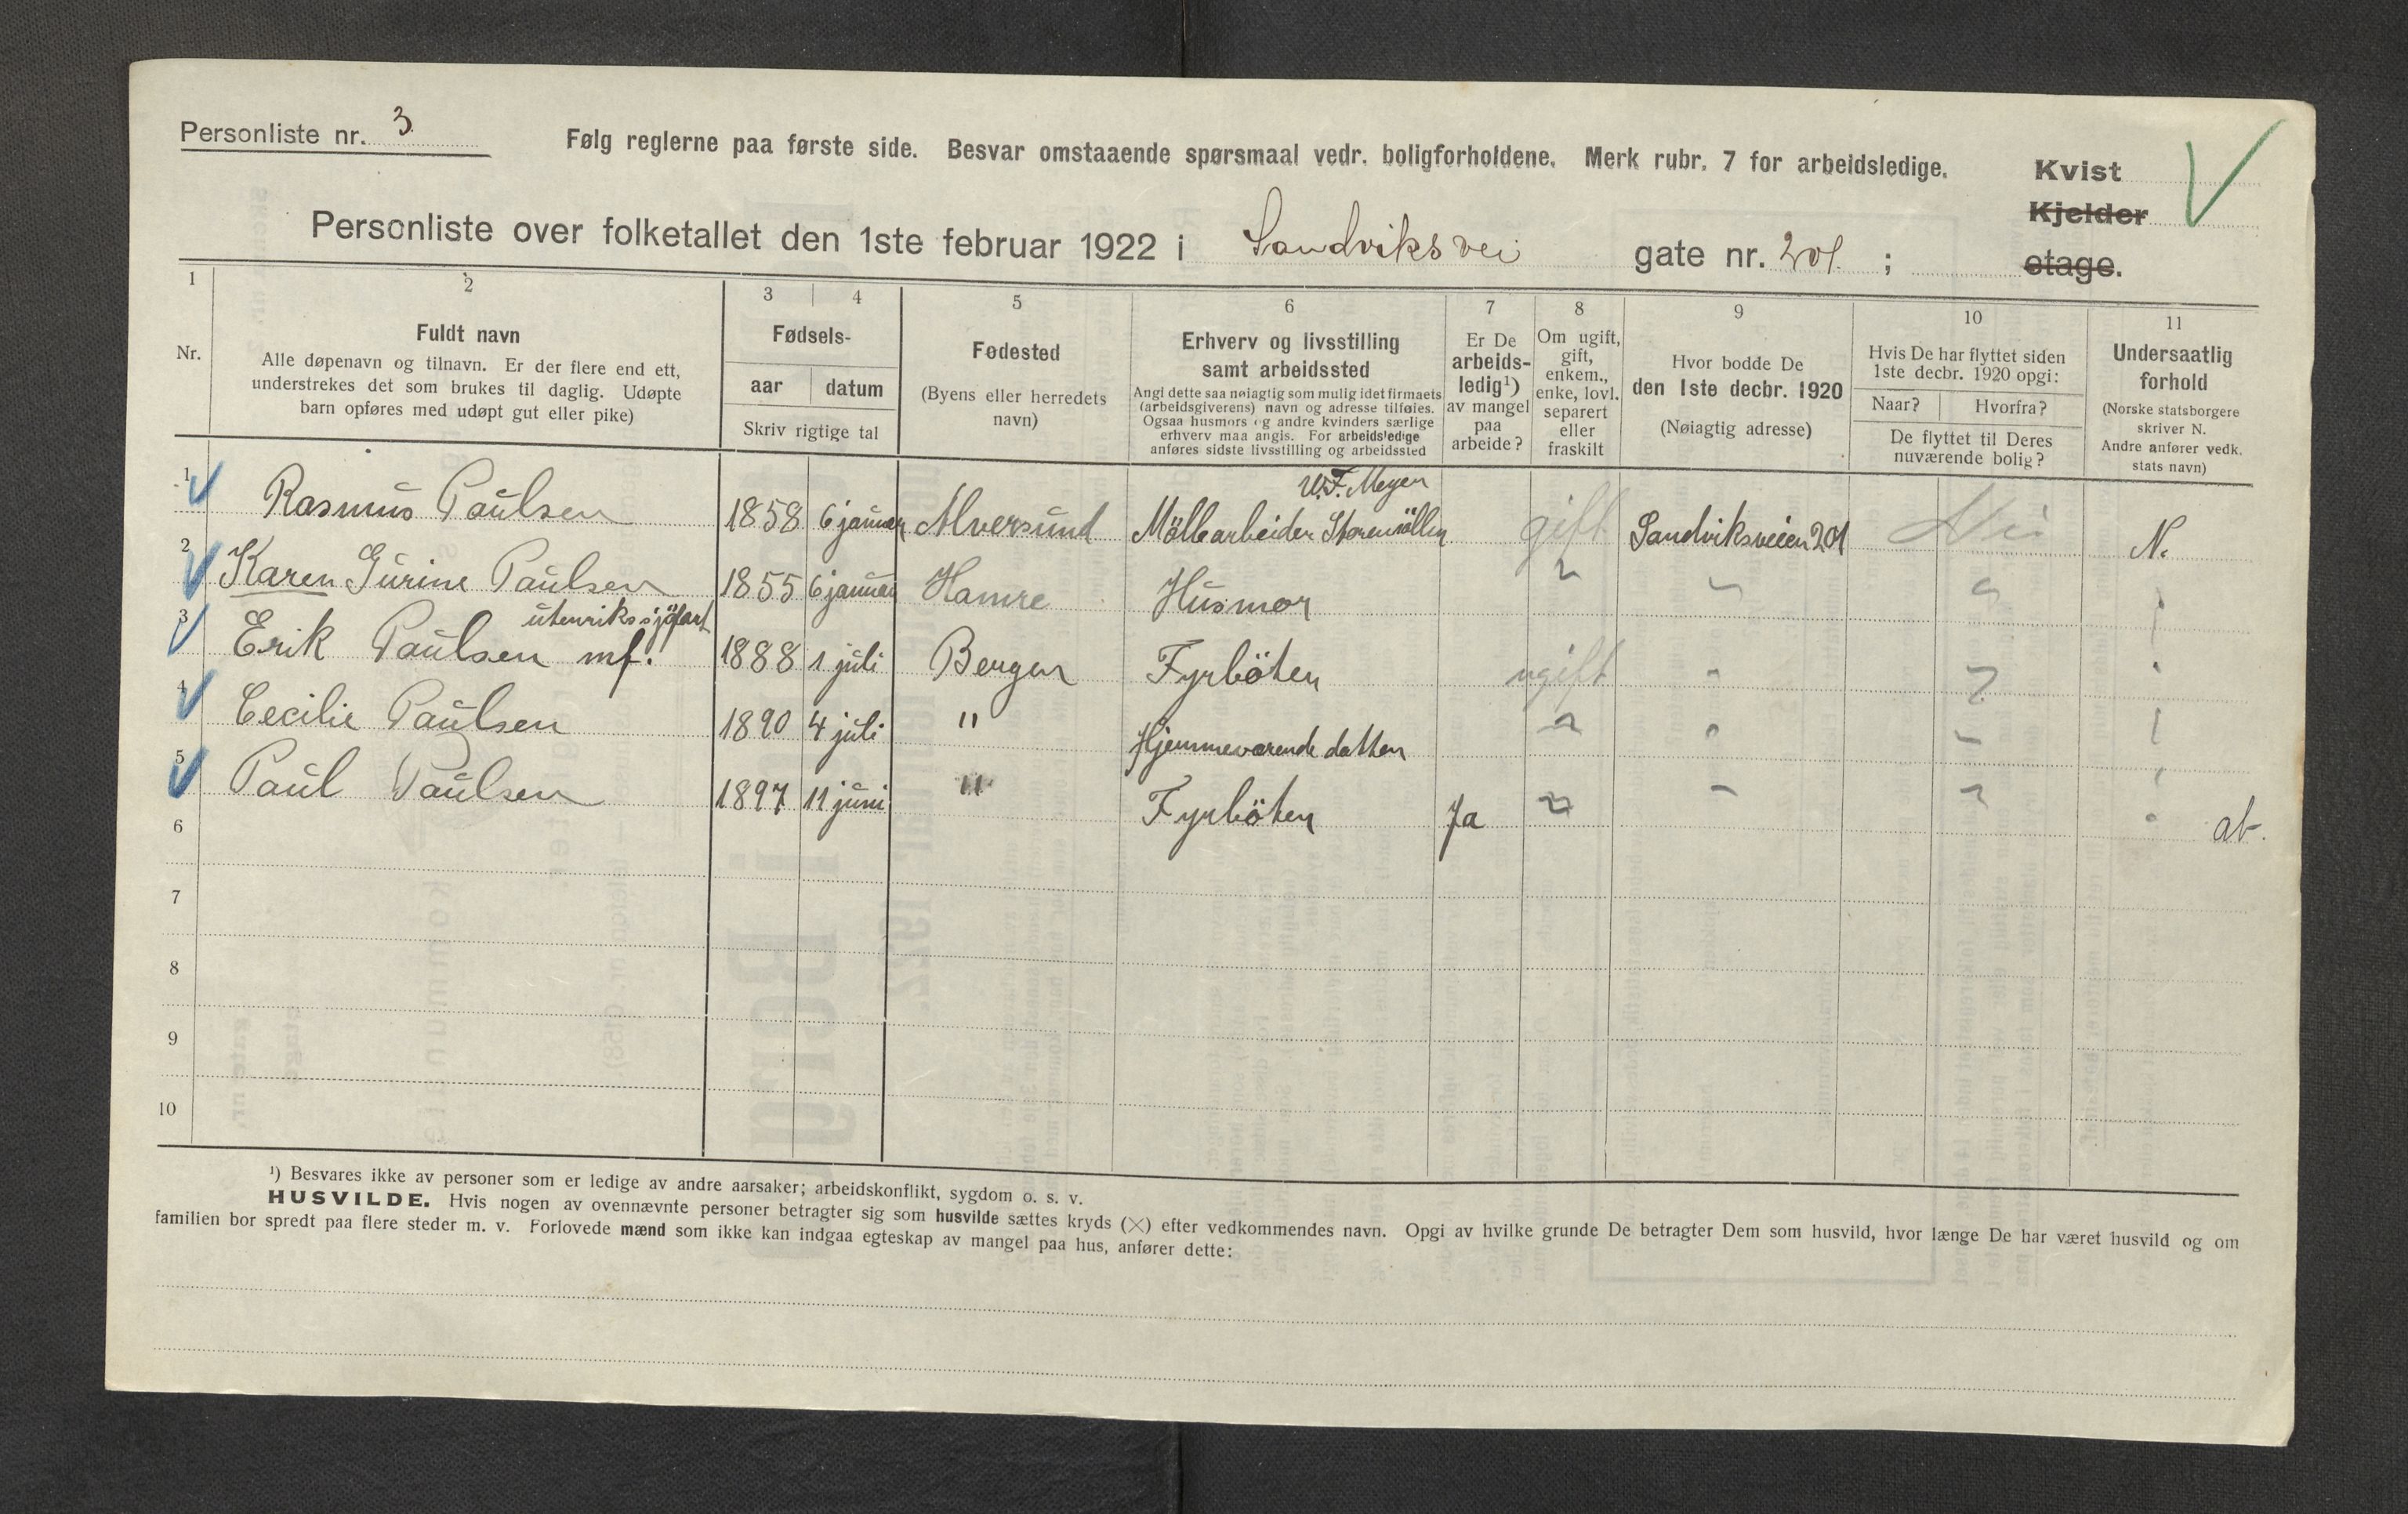 Personliste nr. 3
Følg reglerne paa første side. Besvar omstaaende spørsmaal vedr. boligforholdene. Merk rubr. 7 for arbeidsledige.
Kvist
Kjelder
etage.
Personliste over folketallet den 1ste februar 1922 i Sandviksvei gate nr. 201 ;
1 2 3 4 5 6 7 8 9 10 11
Nr.
Fuldt navn
Alle døpenavn og tilnavn. Er der flere end ett,
understrekes det som brukes til daglig. Udøpte
barn opføres med udøpt gut eller pike)
Fødsels-
aar datum
Skriv rigtige tal
Fødested
(Byens eller herredets
navn)
Erhverv og livsstilling
samt arbeidssted
Angi dette saa nøiagtig som mulig idet firmaets
(arbeidsgiverens) navn og adresse tilføies.
Ogsaa husmors og andre kvinders særlige
erhverv maa angis. For arbeidsledige
anføres sidste livsstilling og arbeidssted
Er De
arbeids-
ledig¹)
av mangel
paa
arbeide?
Om ugift,
gift,
enkem.,
enke, lovl.
separert
eller
fraskilt
Hvor bodde De
den 1ste decbr. 1920
(Nøiagtig adresse)
Hvis De har flyttet siden
1ste decbr. 1920 opgi:
Naar? Hvorfra?
De flyttet til Deres
nuværende bolig?
Undersaatlig
forhold
(Norske statsborgere
skriver N.
Andre anfører vedk.
stats navn)
W.F. Meyer
1 Rasmus Paulsen 1858 6 januar Alversund Möllearbeider Storemöllen gift Sandviksveien 201 Nei N.
2 Karen Gurine Paulsen 1855 6 januar Hamre Husmor
utenriks sjöfart
3 Erik Paulsen mf. 1888 1 juli Bergen Fyrböter ugift
4 Cecilie Paulsen 1890 4 juli " Hjemmeværende datter
5 Paul Paulsen 1897 11 juni " Fyrböter Ja
6
7
8
9
10
¹) Besvares ikke av personer som er ledige av andre aarsaker; arbeidskonflikt, sygdom o. s. v.
HUSVILDE. Hvis nogen av ovennævnte personer betragter sig som husvilde sættes kryds (×) efter vedkommendes navn. Opgi av hvilke grunde De betragter Dem som husvild, hvor længe De har været husvild og om
familien bor spredt paa flere steder m. v. Forlovede mænd som ikke kan indgaa egteskap av mangel paa hus, anfører dette: